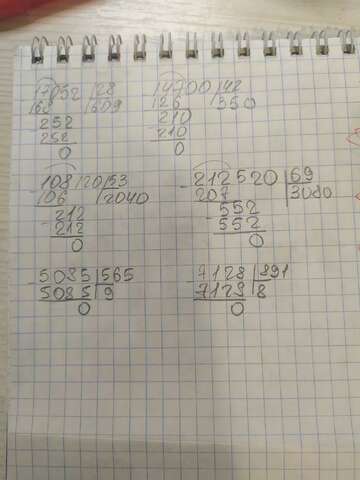 17052 | 28   14700 | 42
168   609   126   350
252   210
252   210
0   0
108120 | 53   212520 | 69
106   2040   207   3080
212   552
212   552
0   0
5085 | 565   7128 | 891
5085   9   7128   8
0   0